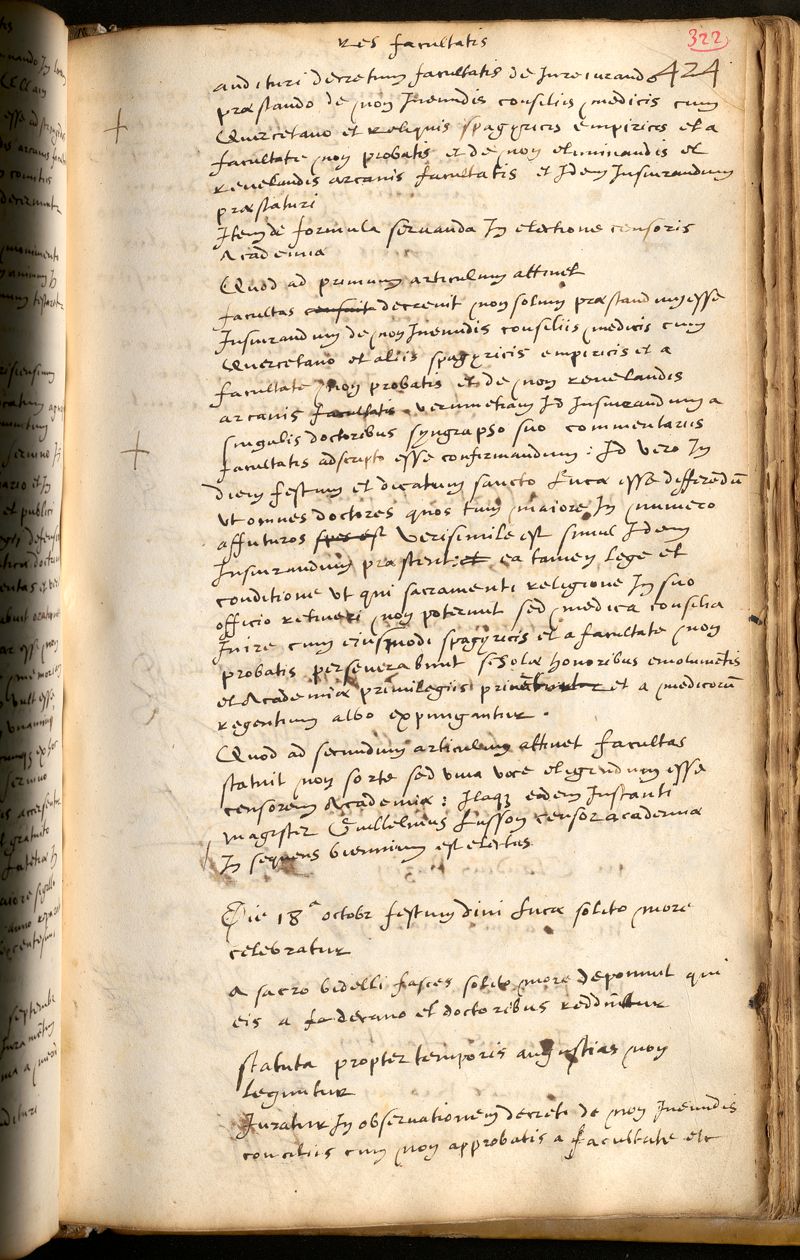 Res facultatis
322
424
audituri decretum facultatis de Jureiurando
præstando de non Ineundis consiliis medicis cum
Quercetano et reliquis spagyricis empiricis et a
facultate non probatis et de non eliminandis et
revelandis arcanis facultatis et Idem Iusiurandum
præstaturi
Item de formula servanda In electione censoris
Academiæ
Quod ad primum articulum attinet
facultas censuit decrevit non solum præstandum esse
Iusiurandum de non Ineundis consiliis medicis cum
Quercetano et aliis spagyricis empiricis et a
facultate non probatis et de non revelandis
arcanis facultatis verumetiam Id Iusiurandum a
singulis doctoribus syngrapho suo commentariis
facultatis adscripto esse confirmandum : Id vero In
diem festum et dicatum sancto Lucæ esse differendū
ut omnes doctores quos tum maiore In numero
affuturos spes est verisimile est simul Idem
Iusiurandum præstent: et ea tamen lege et
conditione ut qui sacramenti religione In suo
officio retineri non poterunt sed medica consilia
Inire cum eiusmodi spagyricis et a facultate non
probatis perseverabunt scholæ honoribus emolumētis
et Academiæ privilegiis et a medicorū
regentium albo expungantur .
Quod ad secundum articulum attinet facultas
statuit non sorte sed viva voce eligendum esse
censorem Academiæ : Itaqꝫ eodem Instanti
magister Guillelmus Lusson censor academiæ
In sequens biennium est electus
Die 18ª octobr festum divi Lucæ solito more
celebratur
A sacro bidelli fasces solito more deponunt qui
eis a decano et doctoribus redduntur
statuta propter temporis angustias non
leguntur
Iuratur In observationem decreti de non Ineundis
conciliis cum non approbatis a facultate etc